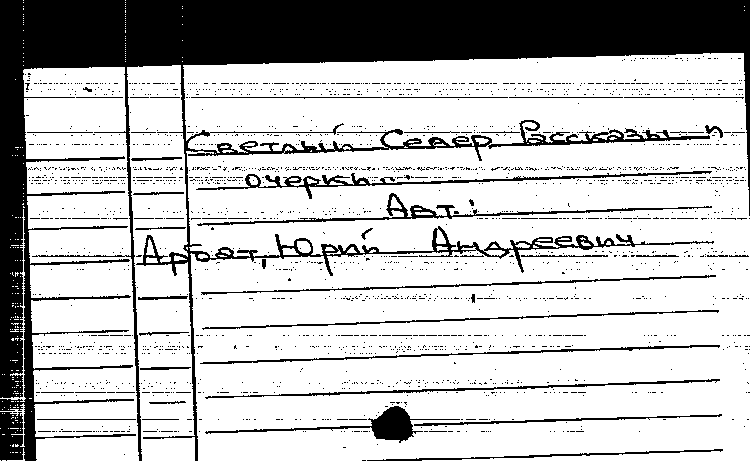 Светлый Север Рассказы и
очерки...
Авт.:
Арбат, Юрий Андреевич.